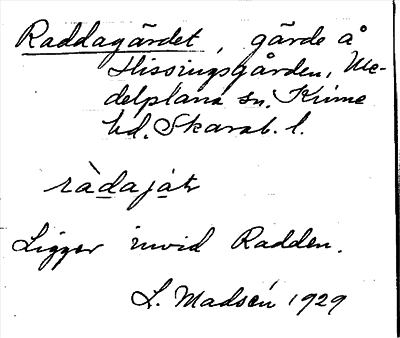 Raddagärdet, gärde å
Hissingsgården, Me-
delplana sn. Kinne
hd. Skarab. l.
ràdajạ́t
Ligger invid Radden.
L. Madsén 1929